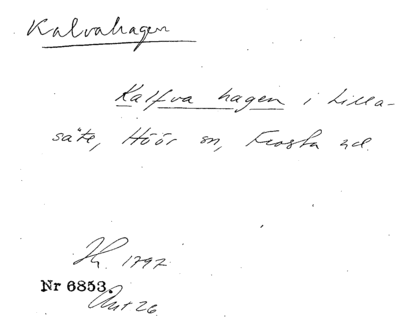 Kalvahagen
Kalfva hagen i Lilla-
säte, Höör sn, Frosta hd.
1797
Nr 6853.
Akt 26